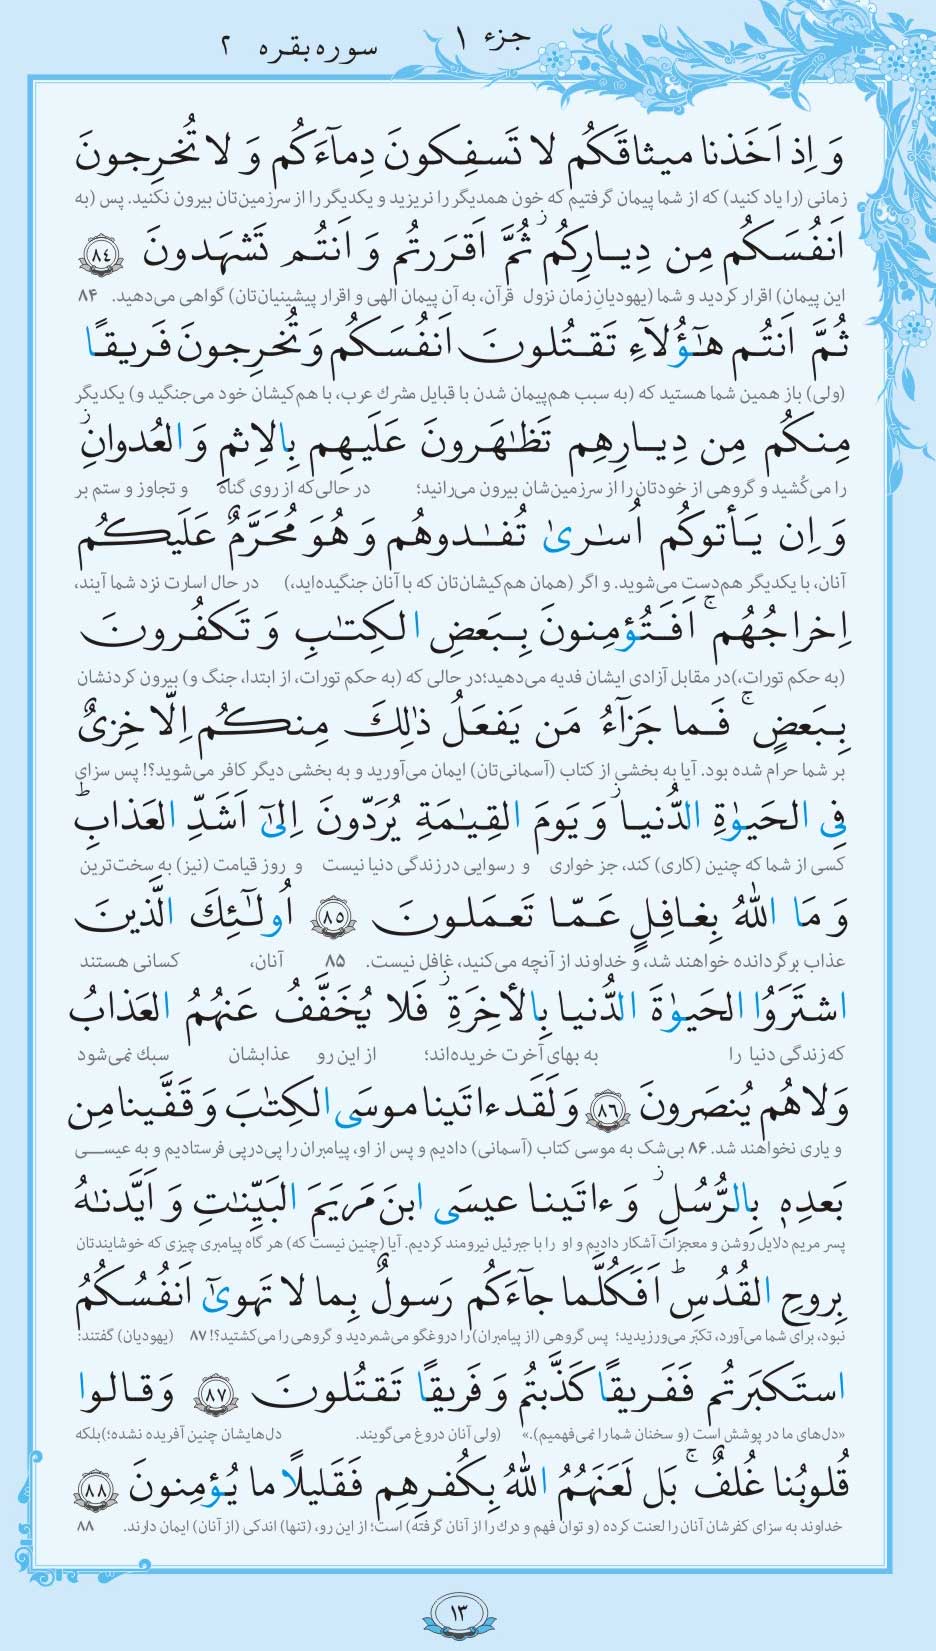 جزء ۱
سوره بقره ۲
وَ اِذ اَخَذنا ميثاقَكُم لا تَسفِكونَ دِمآءَكُم وَ لا تُخرِجونَ
زمانی (را یاد کنید) که از شما پیمان گرفتیم که خون همدیگر را نریزید و یکدیگر را از سرزمین‌تان بیرون نکنید. پس (به
اَنفُسَكُم مِن دِيارِكُم ۖ ثُمَّ اَقرَرتُم وَ اَنتُم تَشهَدونَ ﴿۸۴﴾
این پیمان) اقرار کردید و شما (یهودیانِ زمان نزول قرآن، به آن پیمان الهی و اقرار پیشینیان‌تان) گواهی می‌دهید. ۸۴
ثُمَّ اَنتُم هٰٓؤُلآءِ تَقتُلونَ اَنفُسَكُم وَ تُخرِجونَ فَريقًا
(ولی) باز همین شما هستید که (به سبب هم‌پیمان شدن با قبایل مشرك عرب، با هم‌کیشان خود می‌جنگید و) یکدیگر
مِنكُم مِن دِيارِهِم تَظٰهَرونَ عَلَيهِم بِالاِثمِ وَ العُدوانِ ۖ
را می‌کُشید و گروهی از خودتان را از سرزمین‌شان بیرون می‌رانید؛ در حالی‌که از روی گناه و تجاوز و ستم بر
وَ اِن يَأتوكُم اُسٰرىٰ تُفٰدوهُم وَ هُوَ مُحَرَّمٌ عَلَيكُم
آنان، با یکدیگر هم‌دست می‌شوید. و اگر (همان هم‌کیشان‌تان که با آنان جنگیده‌اید،) در حال اسارت نزد شما آیند،
اِخراجُهُم ۚ اَفَتُؤمِنونَ بِبَعضِ الكِتٰبِ وَ تَكفُرونَ
(به حکم تورات،)در مقابل آزادی ایشان فدیه می‌دهید؛در حالی که (به حکم تورات، از ابتدا، جنگ و) بیرون کردنشان
بِبَعضٍ ۚ فَما جَزآءُ مَن يَفعَلُ ذٰلِكَ مِنكُم اِلّا خِزىٌ
بر شما حرام شده بود. آیا به بخشی از کتاب (آسمانی‌تان) ایمان می‌آورید و به بخشی دیگر کافر می‌شوید؟! پس سزای
فِى الحَيوٰةِ الدُّنيا ۖ وَ يَومَ القِيٰمَةِ يُرَدّونَ اِلىٰٓ اَشَدِّ العَذابِ ۗ
کسی از شما که چنین (کاری) کند، جز خواری و رسوایی در زندگی دنیا نیست و روز قیامت (نیز) به سخت‌ترین
وَ مَا اللّٰهُ بِغافِلٍ عَمّا تَعمَلونَ ﴿۸۵﴾ اُولٰٓئِكَ الَّذينَ
عذاب برگردانده خواهند شد، و خداوند از آنچه می‌کنید، غافل نیست. ۸۵ آنان، کسانی هستند
اشتَرَوُا الحَيوٰةَ الدُّنيا بِالأخِرَةِ ۖ فَلا يُخَفَّفُ عَنهُمُ العَذابُ
که زندگی دنیا را به بهای آخرت خریده‌اند؛ از این رو عذابشان سبك نمی‌شود
وَلا هُم يُنصَرونَ ﴿۸۶﴾ وَ لَقَد ءاتَينا موسَى الكِتٰبَ وَ قَفَّينا مِن
و یاری نخواهند شد. ۸۶ بی‌شک به موسی کتاب (آسمانی) دادیم و پس از او، پیامبران را پی‌درپی فرستادیم و به عیسی
بَعدِهٖ بِالرُّسُلِ ۖ وَ ءاتَينا عيسَى ابنَ مَريَمَ البَيِّنٰتِ وَ اَيَّدنٰهُ
پسر مریم دلایل روشن و معجزات آشکار دادیم و او را با جبرئیل نیرومند کردیم. آیا (چنین نیست که) هر گاه پیامبری چیزی که خوشایندتان
بِروحِ القُدُسِ ۗ اَفَكُلَّما جآءَكُم رَسولٌ بِما لا تَهوىٰٓ اَنفُسُكُمُ
نبود، برای شما می‌آورد، تکبّر می‌ورزیدید؛ پس گروهی (از پیامبران) را دروغگو می‌شمردید و گروهی را می‌کشتید؟! ۸۷ (یهودیان) گفتند:
استَكبَرتُم فَفَريقًا كَذَّبتُم وَ فَريقًا تَقتُلونَ ﴿۸۷﴾ وَ قالوا
«دل‌های ما در پوشش است (و سخنان شما را نمی‌فهمیم).» (ولی آنان دروغ می‌گویند. دل‌هایشان چنین آفریده نشده؛)بلکه
قُلوبُنا غُلفٌ ۚ بَل لَعَنَهُمُ اللّٰهُ بِكُفرِهِم فَقَليلًا ما يُؤمِنونَ ﴿۸۸﴾
خداوند به سزای کفرشان آنان را لعنت کرده (و توان فهم و درك را از آنان گرفته) است؛ از این رو، (تنها) اندکی (از آنان) ایمان دارند. ۸۸
۱۳